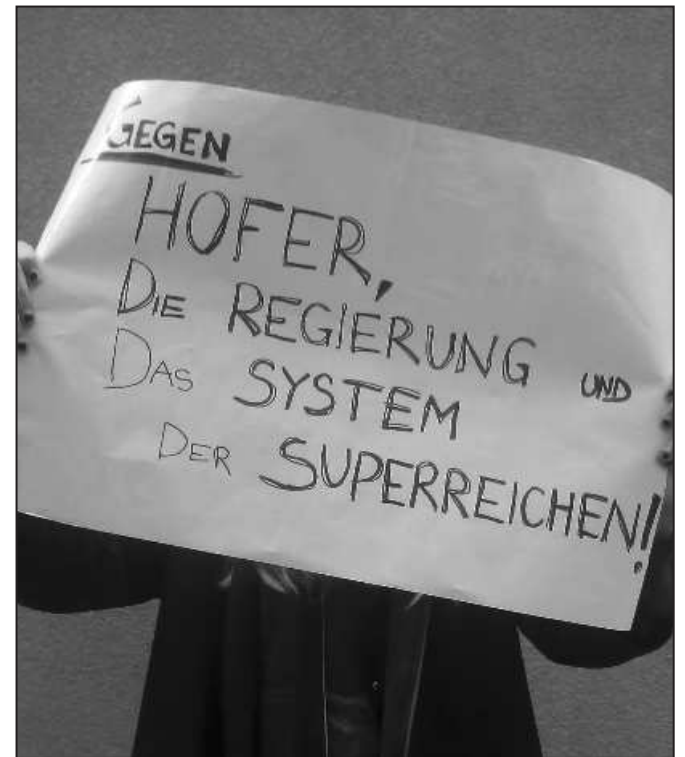 GEGEN
HOFER,
DIE REGIERUNG UND
DAS SYSTEM
DER SUPERREICHEN!